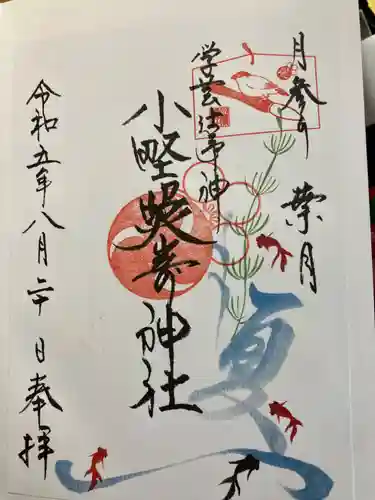 月参り 葉月
夏
学芸
神
小野照崎神社
令和五年八月二十日奉拝